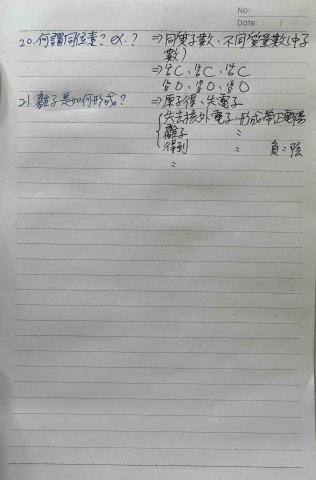 No:
Date: /
20.何謂同位素？ex.？ ⇒同質子數、不同質量數(中子
數)
⇒¹²₆C、¹³₆C、¹⁴₆C
¹⁶₈O、¹⁷₈O、¹⁸₈O
21.離子是如何形成？ ⇒原子得、失電子
失去核外電子,形成帶正電陽
離子 〃
得到 〃 負〃陰
〃